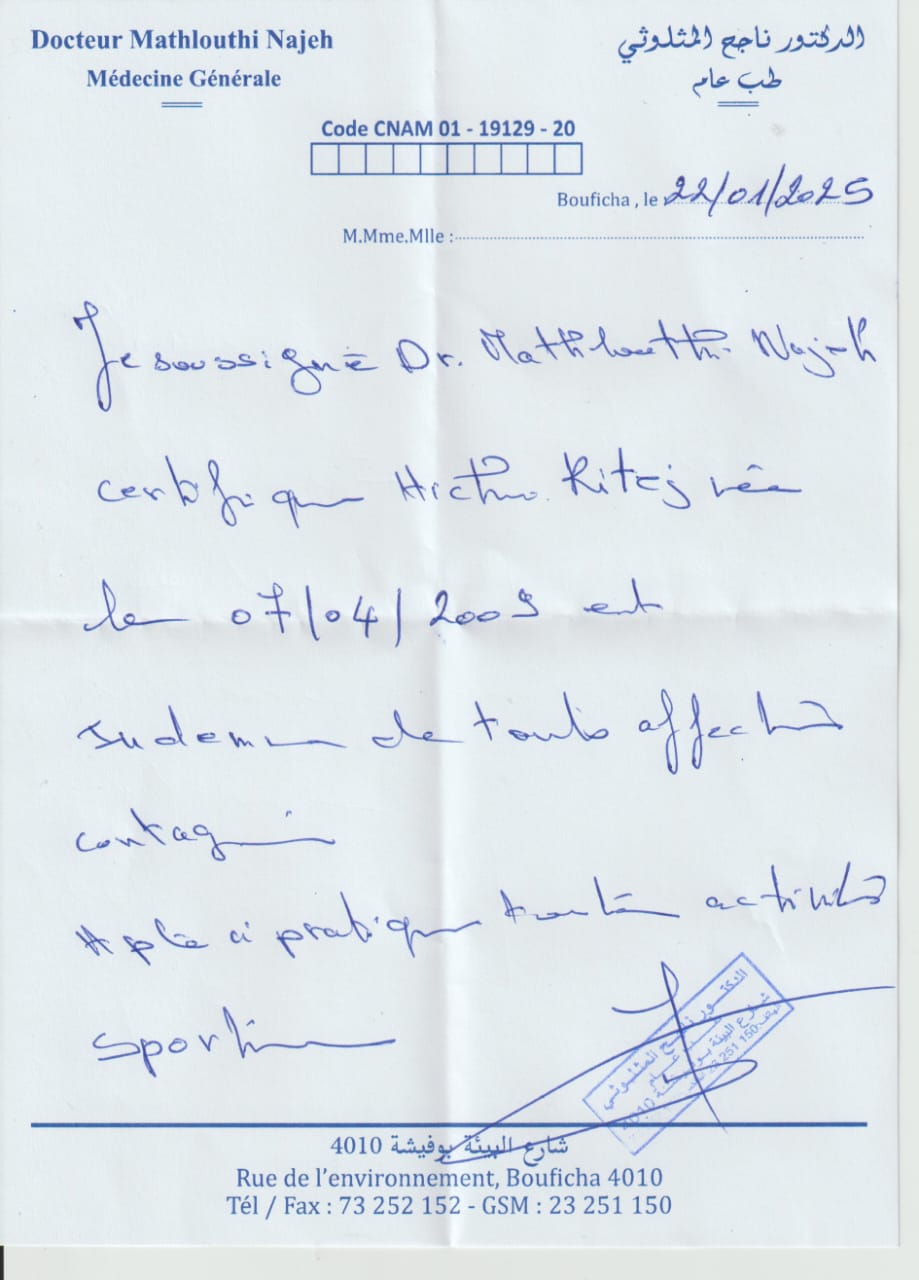 Docteur Mathlouthi Najeh
Médecine Générale
الدكتور ناجح المثلوثي
طب عام
Code CNAM 01 - 19129 - 20
Bouficha , le : 22/01/2025
M.Mme.Mlle :
Je soussigné Dr. Mathlouthi Najeh
certifie que Kitej née
le 07/04/2009 est
indemne de toute affection
contagieuse
Apte à pratiquer toute activité
sportive
الدكتور ناجح المثلوثي
طب عام
شارع البيئة بوفيشة 4010
23 251 150
شارع البيئة بوفيشة 4010
Rue de l'environnement, Bouficha 4010
Tél / Fax : 73 252 152 - GSM : 23 251 150